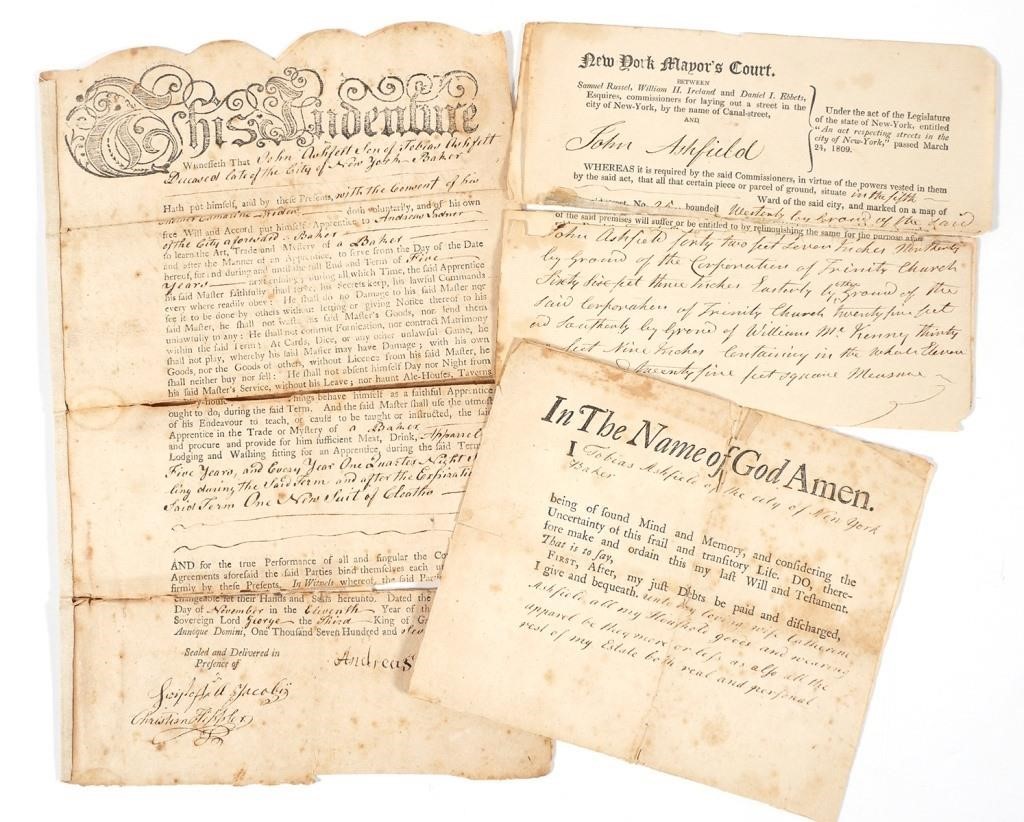 This Indenture
Witnesseth That John Ashfeit Son of Tobias Ashfitt
Deceased late of the City of New York Baker
Hath put himself, and by these Presents, with the Consent of his
doth voluntarily, and of his own
free Will and Accord put himself Apprentice to Andreas Lodner
of the City aforesaid Baker
to learn the Art, Trade and Mystery of a Baker
and after the Manner of an Apprentice, to serve from the Day of the Date
hereof, for and during and until the full End and Term of Five
Years next ensuing; during all which Time, the said Apprentice
his said Master faithfully shall serve, his Secrets keep, his lawful Commands
every where readily obey: He shall do no Damage to his said Master nor
see it to be done by others without letting or giving Notice thereof to his
said Master, he shall not waste his said Master's Goods, nor lend them
unlawfully to any: He shall not commit Fornication, nor contract Matrimony
within the said Term: At Cards, Dice, or any other unlawful Game, he
shall not play, whereby his said Master may have Damage; with his own
Goods, nor the Goods of others, without Licence from his said Master, he
shall neither buy nor sell: He shall not absent himself Day nor Night from
his said Master's Service, without his Leave; nor haunt Ale-Houses, Taverns
behave himself as a faithful Apprentice
ought to do, during the said Term. And the said Master shall use the utmost
of his Endeavour to teach, or cause to be taught or instructed, the said
Apprentice in the Trade or Mystery of a Baker
and procure and provide for him sufficient Meat, Drink, Apparrel
Lodging and Washing fitting for an Apprentice, during the said Term
Five Years, and Every Year One Quarter Night S
ling during the Said Term and after the Expiratio
Said Term One New Suit of Cloaths
AND for the true Performance of all and singular the Co
Agreements aforesaid the said Parties bind themselves each u
firmly by these Presents. In Witness whereof, the said Part
changeable set their Hands and Seals hereunto. Dated the
Day of November in the Eleventh Year of th
Sovereign Lord George the Third King of G
Annoque Domini, One Thousand Seven Hundred and
Sealed and Delivered in
Presence of
Andreas
Jacoby
Christian
New York Mayor's Court.
BETWEEN
Samuel Russel, William H. Ireland and Daniel I. Ebbets,
Esquires, commissioners for laying out a street in the
city of New-York, by the name of Canal-street,
AND
John Ashfield
Under the act of the Legislature
of the state of New-York, entitled
"An act respecting streets in the
city of New-York," passed March
24, 1809.
WHEREAS it is required by the said Commissioners, in virtue of the powers vested in them
by the said act, that all that certain piece or parcel of ground, situate in the fifth
Ward of the said city, and marked on a map of
No. 25 bounded Westerly by Ground of the said
of the said premises will suffer or be entitled to by relinquishing the same for the purpose afore
John Ashfield forty two feet Seven Inches Northerly
by Ground of the Corporation of Trinity Church
Sixty Six feet three Inches Easterly by other Ground of the
said Corporation of Trinity Church twenty five feet
and Southerly by Ground of William Mc Kenney thirty
feet Nine Inches Containing in the whole Eleven
twenty five feet square Measure
In The Name of God Amen.
I Tobias Ashfield of the city of New York
Baker
being of sound Mind and Memory, and considering the
Uncertainty of this frail and transitory Life. DO, there-
fore make and ordain this my last Will and Testament.
That is to say,
FIRST, After, my just Debts be paid and discharged,
I give and bequeath. unto my loving wife Catherine
Ashfield all my Houshold goods and wearing
apparel be they more or less as also all the
rest of my Estate both real and personal